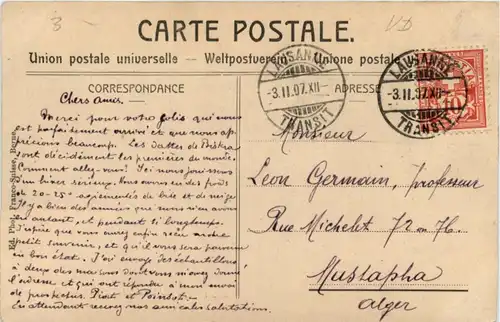 3
VD
CARTE POSTALE.
Union postale universelle – Weltpostverein – Unione postale
CORRESPONDANCE
ADRESSE
LAUSANNE
-3.II.07.XII-
TRANSIT
LAUSANNE
-3.II.07.XII-
TRANSIT
10
Chers amis.
Merci pour votre colis qui nous
est parfaitement arrivé et que nous ap-
précions beaucoup. Les dattes de Biskra
sont décidément les premières du monde.
Comment allez-vous? Ici nous jouissons
un hiver sérieux. Nous avons eu des froids
de 20-25° agrémentés de bise et de neige
Il y a bien des années que nous n'en avions
eu autant, et pendant si longtemps.
J'espère que vous aurez enfin reçu notre
petit souvenir, et qu'il vous sera parvenu
en bon état. J'ai envoyé des échantillons
à deux des maisons dont vous m'avez donné
l'adresse et qui ont répondu à mon envoi
de prospectus. Piot et Poinsot.
En attendant recevez nos amicales salutations.
Monsieur
Leon Germain, professeur
Rue Michelet 72 76.
Mustapha
Alger
Ed. Phot. Franco-Suisse, Berne.